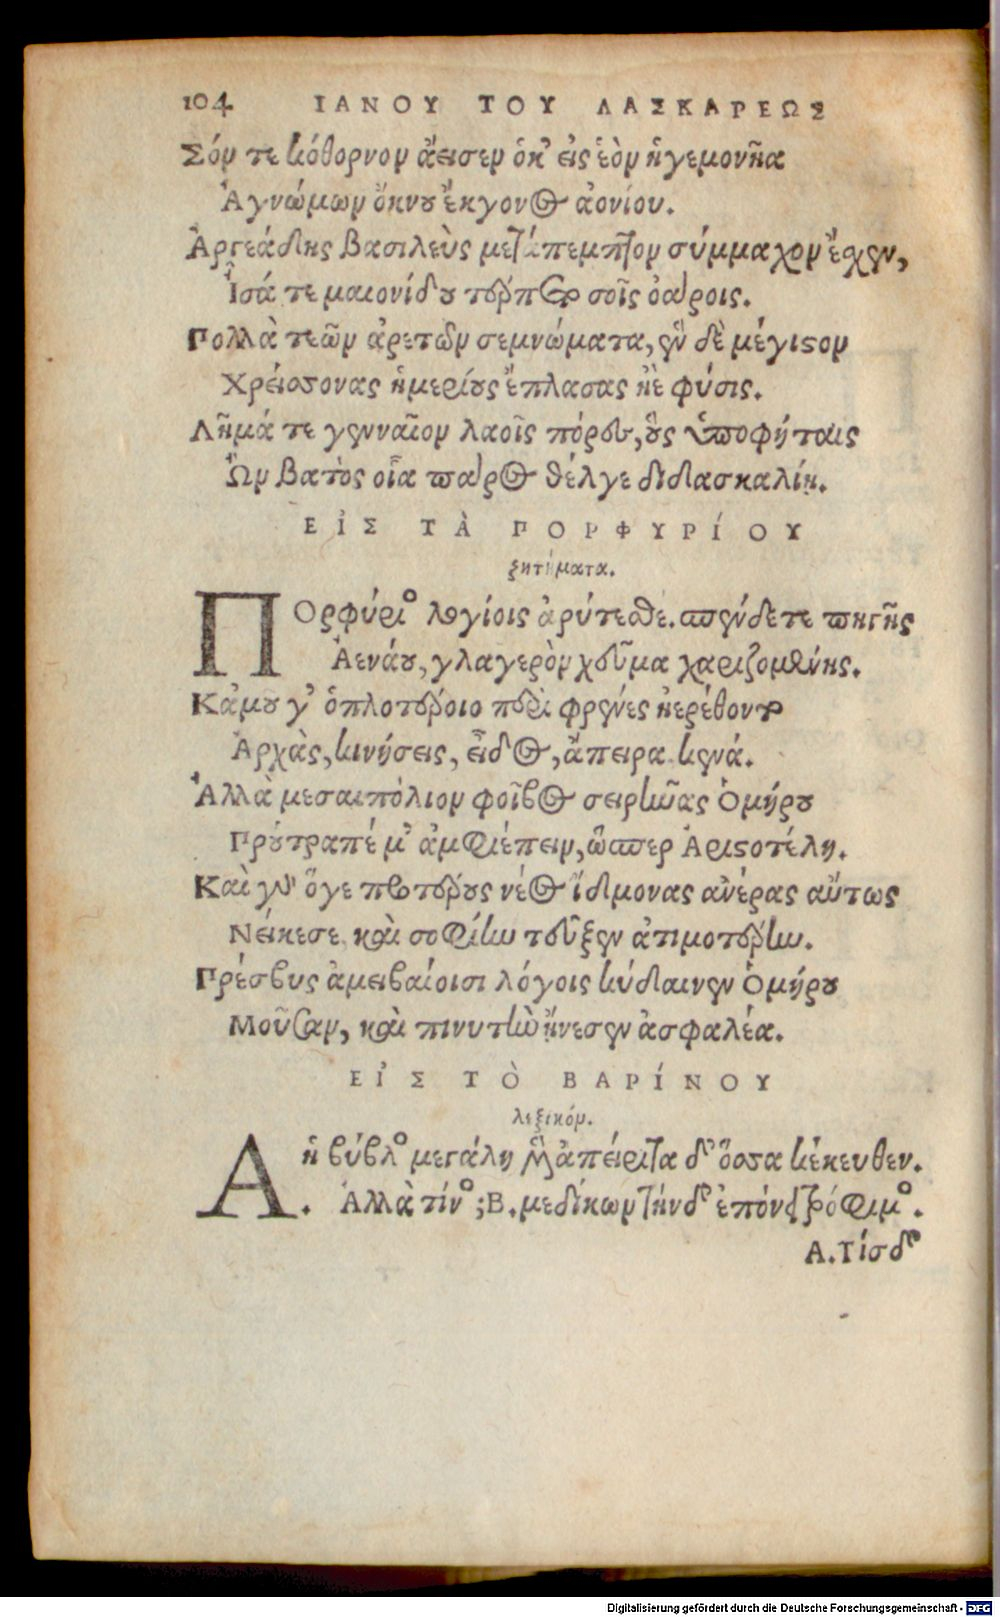 104 ΙΑΝΟΥ ΤΟΥ ΛΑΣΚΑΡΕΩΣ
Σόν τε κόθορνον ἄεισεν ὁκ' εἰς ἑὸν ἡγεμονῆα
Ἀγνώμων ὄκνου ἔκγονος ἀονίου.
Ἀργεάδης βασιλεὺς μετάπεμπτον σύμμαχον ἔχεν,
Ἶσά τε μαιονίδου τέρπεο σοῖς ὀάροις.
Πολλὰ τεῶν ἀρετῶν σεμνώματα, ἓν δὲ μέγιστον
Χρείσσονας ἡμερίους ἔπλασας ἠὲ φύσις.
Λῆμά τε γενναῖον λαοῖς πόρες, οὓς ὑποφήταις
Ὧν βατὸς οἷα παρος θέλγε διδασκαλίῃ.
ΕἸΣ ΤᾺ ΠΟΡΦΥΡΊΟΥ
ζητήματα.
ΠΟρφύριον λογίοις ἀρύτεσθε. σπένδετε πηγῆς
Ἀενάου, γλαγερὸν χεῦμα χαριζομένης.
Κἀμοῦ γ' ὁπλοτέροιο περὶ φρένες ἠερέθοντο
Ἀρχὰς, κινήσεις, εἶδος, ἄπειρα κενά.
Ἀλλὰ μεσαιπόλιον φοῖβος σειρῆνας Ὁμήρου
Προύτραπέ μ' ἀμφιέπειν, ὥσπερ Ἀριστοτέλη.
Καὶ γὰρ ὅγε προτέρους νέος ἴδμονας ἀνέρας αὔτως
Νείκεσε καὶ σοφίην τεῦξεν ἀτιμοτέρην.
Πρέσβυς ἀμειβαίοισι λόγοις κύδαινεν Ὁμήρου
Μοῦσαν, καὶ πινυτὴν ᾔνεσεν ἀσφαλέα.
ΕἸΣ ΤῸ ΒΑΡΊΝΟΥ
λεξικόν.
Α. ἡ βύβλος μεγάλη ἀπείριτα δ' ὅσσα κέκευθεν.
Ἀλλὰ τίνος; Β. μεδίκων τήνδ' ἐπόνει τρόφιμος.
Α. Τίσδ'
Digitalisierung gefördert durch die Deutsche Forschungsgemeinschaft - DFG